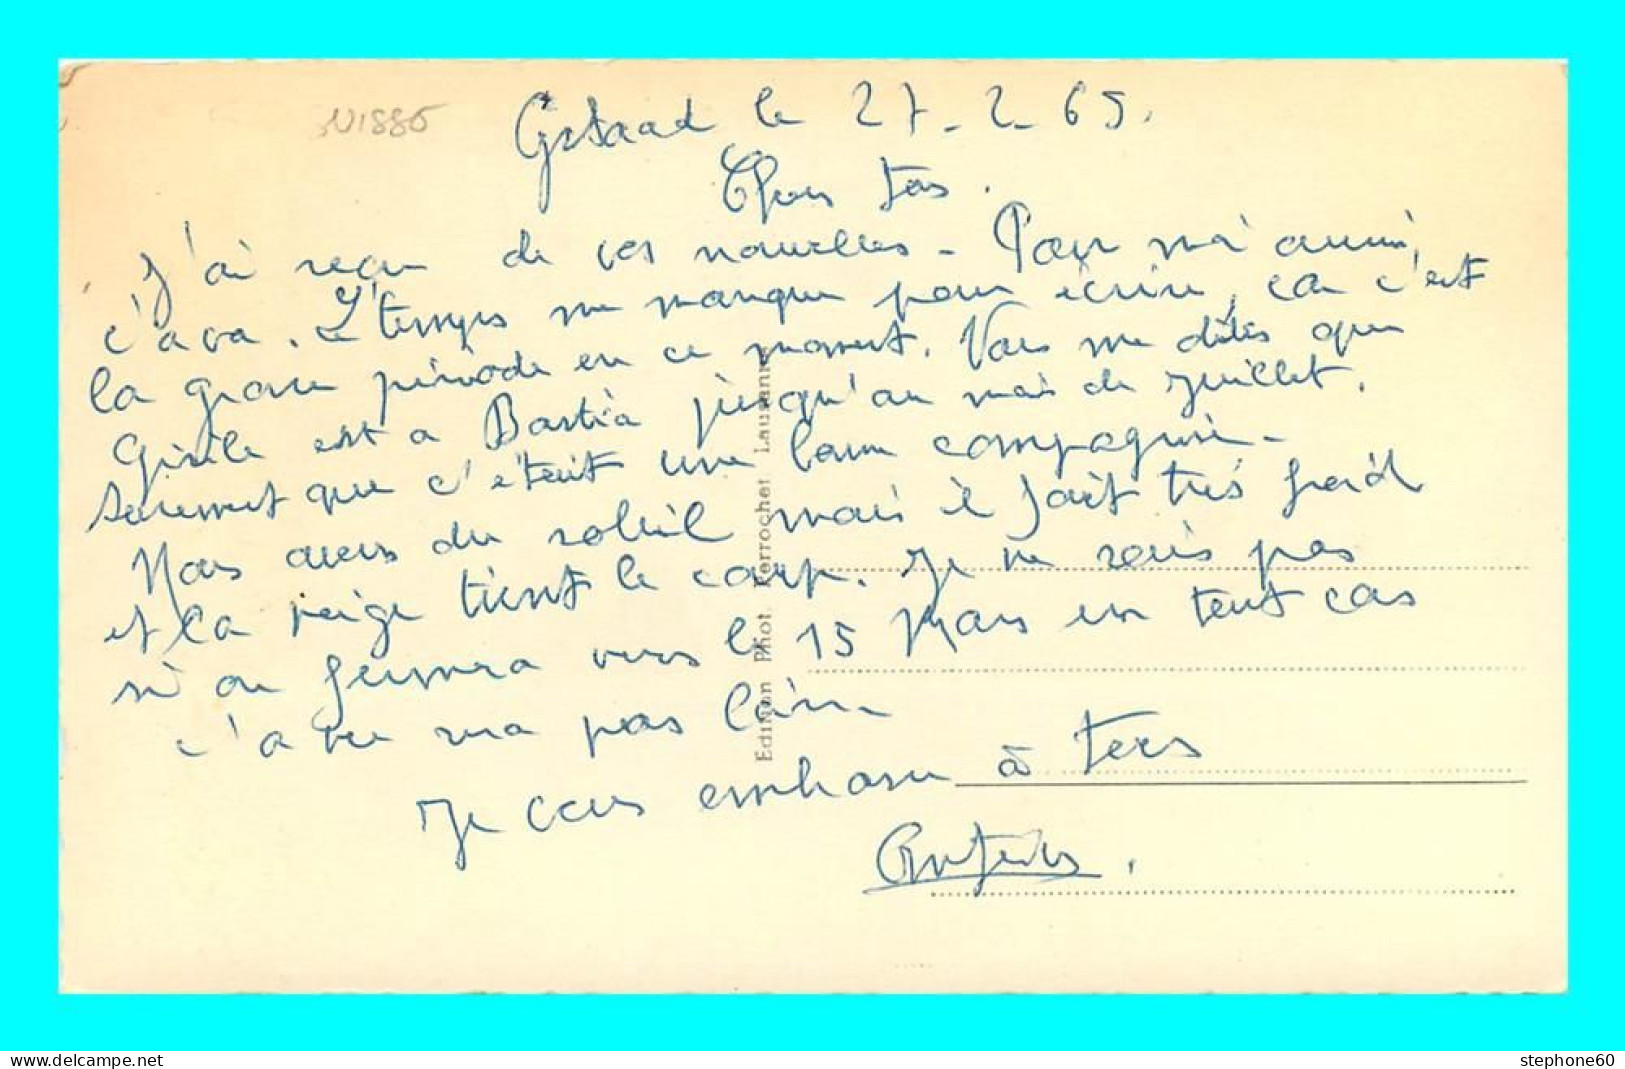 Gstaad le 27-2-65.
Chers tous.
J'ai reçu de vos nouvelles - Pour moi aussi,
c'a va. Le temps me manque pour écrire, car c'est
la grosse période en ce moment. Vous me dites que
Gisèle est a Bastia jusqu'au mois de Juillet.
surement que c'était une bonne compagnie -
Nous avons du soleil mais il fait très froid
et la neige tient le coup. Je ne sais pas
si on fermera vers le 15 Mars en tout cas
c'a ne va pas
Je vous embrasse à tous
Edition Phot. Perrochet Lausanne
stephone60